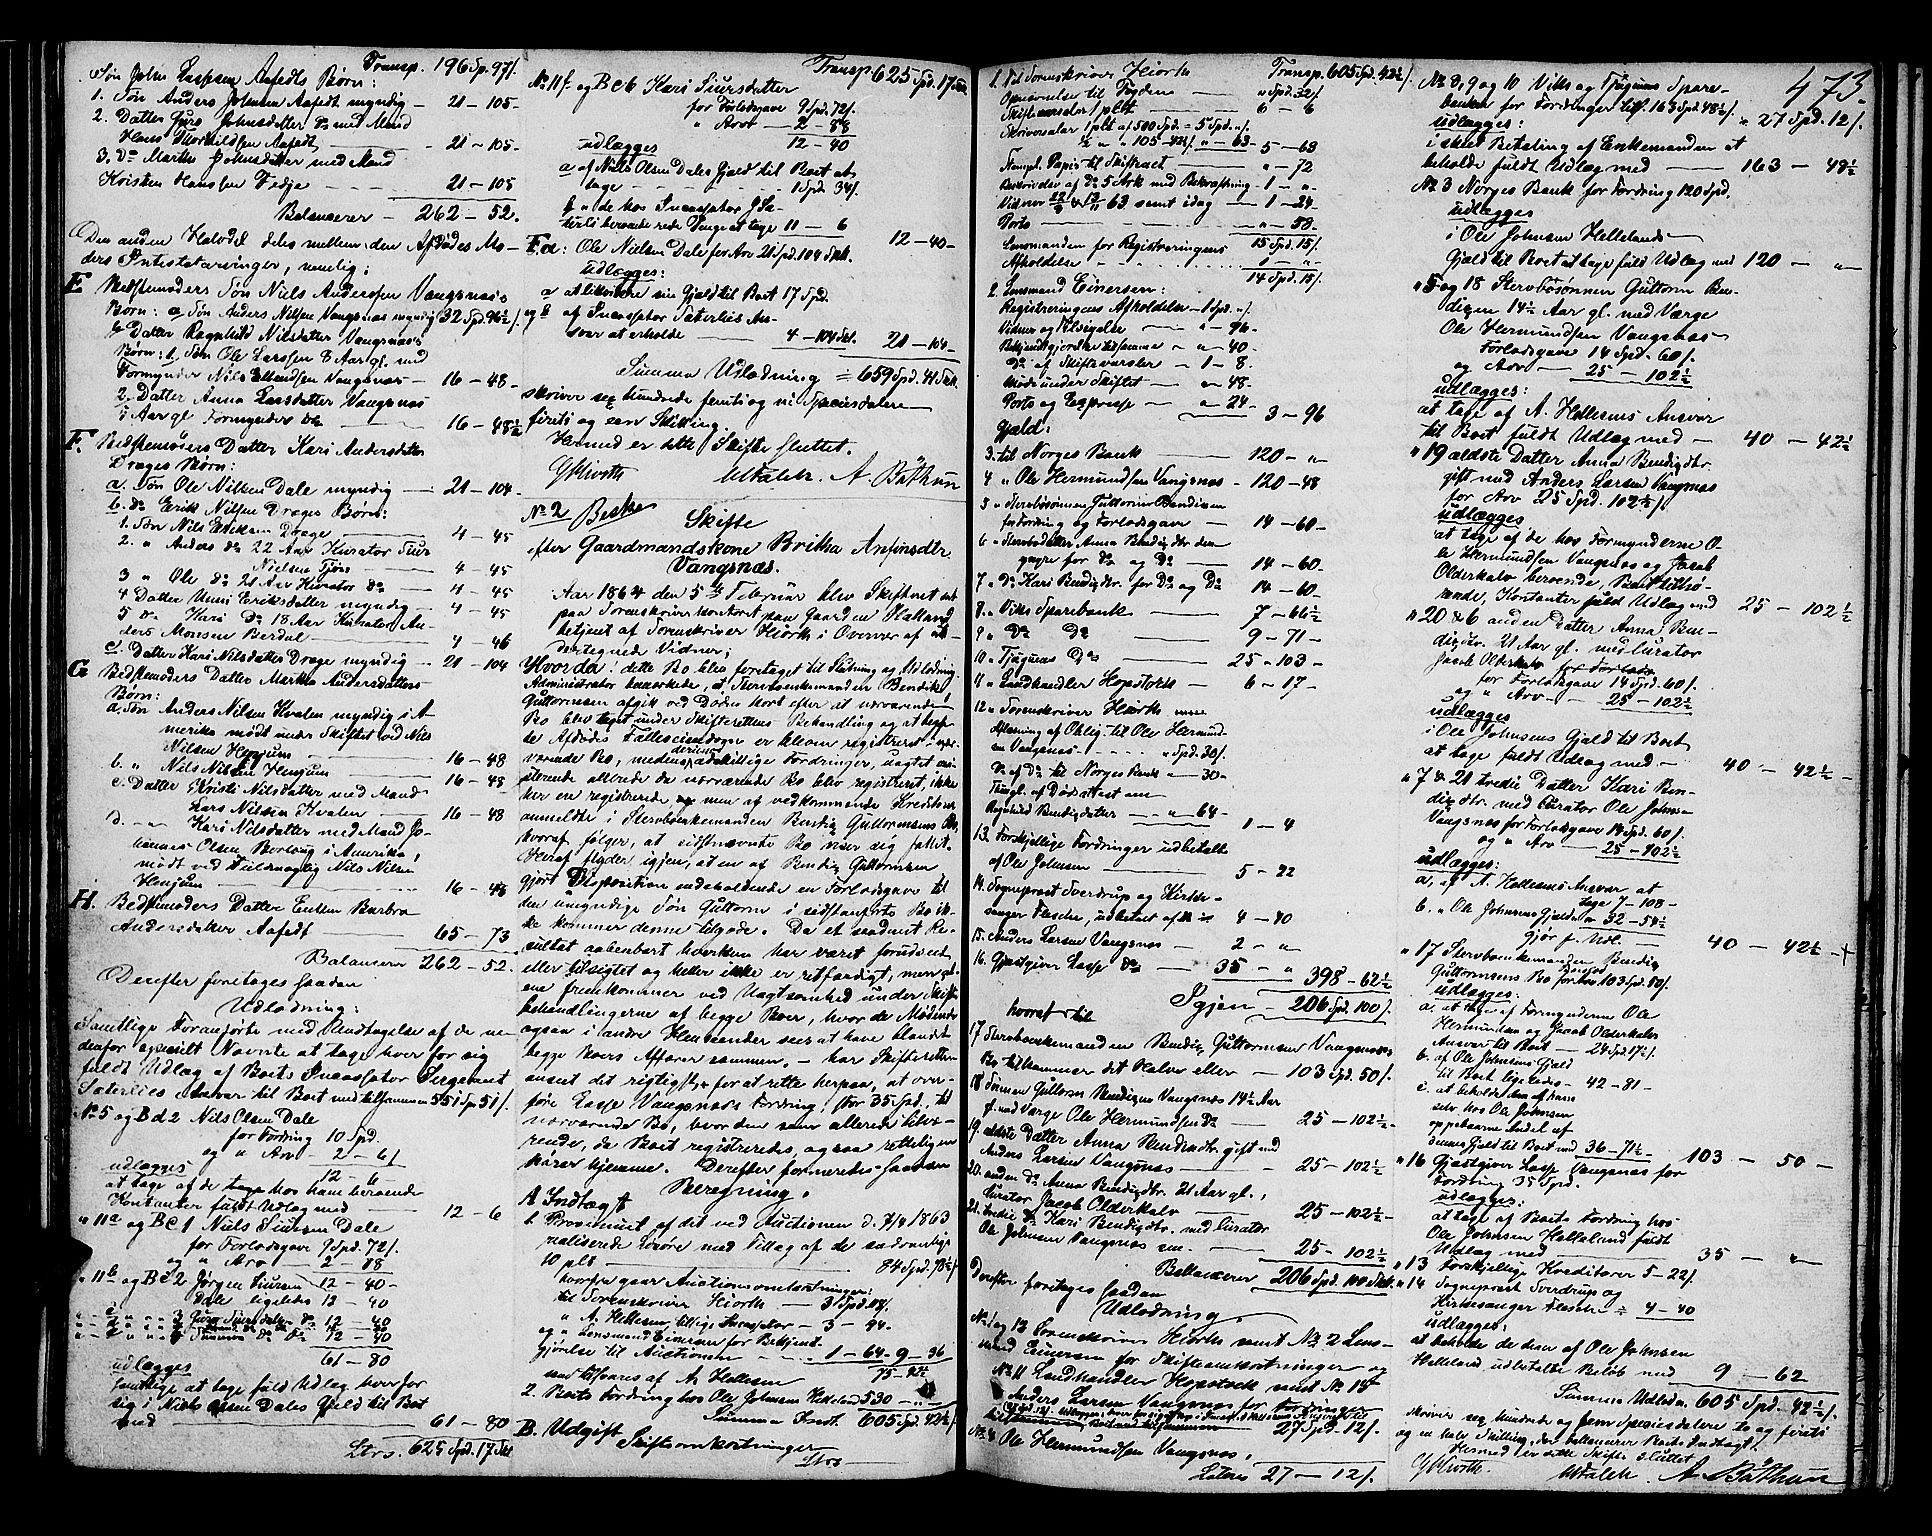 Transp. 196 Sp. 97/.
Søn John Lassesen Aafedts Børn:
1. Søn Anders Johnsen Aafedt myndig — 21 — 105 —
2. Datter Guro Johnsdatter do med Mand
Hans Thorkildsen Aafedt — 21 — 105 —
3. do Martha Johnsdatter med Mand
Kristen Hansen Fedje — 21 — 105
Balancerer — 262 — 52.
Den anden Halvdel deles mellem den Afdødes Mo-
ders Intestatarvinger, nemlig:
E Bedstemoders Søn Niels Andersen Vangsnæs's
Børn: a Søn Anders Nilsen Vangsnæs myndig 32 Spd. 96½/.
b Datter Ragnhild Nilsdatter Vangsnæs's
Børn: 1. Søn Ole Larssen 8 Aar gl. med
Formynder Nils Vangsnæs — 16 — 48 —
2. Datter Anna Larsdatter Vangsnæs
Aar gl. Formynder do — 16 — 48½
F. Bedstemoders Datter Kari Andersdatter
Drages Børn:
a. Søn Ole Nilsen Dale myndig — 21 — 104 —
b. do Erik Nilsen Drages Børn:
1. Søn Nils Eriksen Drage — 4 — 45
2. " Anders do 22 Aar Kurator
Nielsen — 4 — 45
3 " Ole do 21 Aar Kurator do — 4 — 45
4 Datter Unni Eriksdatter myndig — 4 — 45
5 do Kari do 18 Aar Kurator An-
ders Monsen Berdal — 4 — 46
c. Datter Kari Nilsdatter Drage myndig — 21 — 104
G Bedstemoders Datter Martha Andersdatters
Børn:
a. Søn Anders Nilsen Kvalen myndig i A-
merika mødt under Skiftet ved Nils
Nilsen Henjum — 16 — 48
b. " Nils Nilsen Henjum — 16 — 48
c. Datter Kristi Nilsdatter med Mand
Lars Nilsen Kvalen — 16 — 48
d. — Kari Nilsdatter med Mand Jo-
hannes Olsen i Amerika,
mødt ved Nils Nilsen
Henjum — 16 — 48
H. Bedstemoders Datter Enken Barbra
Andersdatter Aafedt — 65 — 73
Balancerer 262 — 52.
Derefter foretages saadan
Udlodning:
Samtlige Foranførte med Undtagelse af de ne-
denfor specielt Nævnte at tage hver for sig
fuldt Udlæg af Boets Incassator Sergeant
Sæterlies Ansvar til Boet med tilsammen 551 Sp 51/.
No 5 og Bd 2 Nils Olsen Dale
for Fordring 10 Spd.
og " Arv — 2 — 61
udlægges 12 — 6
at tage af de hos ham beroende
Kontanter fuldt Udlæg med — 12 — 6
" 11a og Bc 1 Niels Siursen Dale
for Forlodsgave 9 Spd. 72/.
og " Arv — 2 — 88
" 11b og Bc 2 Jørgen Siursen 12 — 40 —
Dale ligeledes 12 — 40
" c " " 3 Guro Siursdatter do 12 — 40
" d " " 4 do do 12 — 40
udlægges 61 — 80
samtlige at tage fuld Udlæg hver for
sig i Niels Olsen Dales Gjeld til Boet
med — 61 — 80
Ltrs. 625 Spd. 17 Sk

Transp 625 Spd. 17 Sk
No 11f. og Bc 6 Kari Siursdatter
for Forlodsgave 9 Spd. 72/.
" Arv — 2 — 88
udlægges 12 — 40
a af Niels Olsen Dales Gjeld til Boet at
tage — 1 Spd 34/.
b " de hos Incassator J. Sæ-
terlie beroende rede Penge at tage 11 — 6
12 — 40 —
Fa: Ole Nielsen Dale for Arv 21 Spd. 104 Sk.
udlægges:
a at likvidere sin Gjeld til Boet 17 Spd.
og b af Incassator Sæterlies An-
svar at erholde — 4 — 104 Sk.
21 — 104 —
Summa Udlodning = 659 Spd. 41 Sk.
skriver sex hundrede femti og ni Speciesdalere
firti og een Skilling.
Hermed er dette Skifte sluttet.
GHiorth A. Bøthun
No 2 Beske Skifte
efter Gaardmandskone Britha Ansfinsdtr
Vangsnæs.
Aar 1864 den 5te Februar blev Skifteret sat
paa Sorenskriverkontoret paa Gaarden Hatland
betjent af Sorenskriver Hiorth i Overvær af un-
dertegnede Vidner;
Hvorda: dette Bo blev foretaget til Slutning og Udlodning.
Administrator bemærkede, at Stervboenkemanden Bendik
Guttormsen afgik ved Døden kort efter at nærværende
Bo blev taget under Skifterettens Behandling og at beg-
ge Afdødes Fælleseiendogn er bleven registreret i nær-
værende Bo, medens derimod adskillige Fordringer, uagtet exi-
sterende allerede da nærværende Bo blev registreret, ikke
her ere registrerede men af vedkommende Kreditorer
anmeldte i Stervboenkemanden Bendix Guttormsens Bo,
hvoraf følger, at sidstnævnte Bo viser sig fallit.
Heraf flyder igjen, at en af Bendix Guttormsen
gjort Disposition indeholdende en Forlodsgave til
den umyndige Søn Guttorm i sidstanførte Bo ik-
ke kommer denne tilgode. Da et saadant Re-
sultat aabenbart hverken har været forudseet
eller tilsigtet og heller ikke er retfærdigt, men al-
ene fremkommer ved Uagtsomhed under Skifte-
behandlingerne af begge Boer, hvor de Mødende
ogsaa i andre Henseender sees at have blandet
begge Boers Affærer sammen, — har Skifteretten
anseet det rigtigst, for at rette herpaa, at over-
føre Lasse Vangsnæs's Fordring, stor 35 Spd., til
nærværende Bo, hvor den som allerede tilvæ-
rende, da Boet registreredes, ogsaa rettelig
hører hjemme. Derefter formeredes saadan
Beregning.
A Indtægt
1. Provenuet af det ved Auctionen d. 7/4 1863
realiserede Løsøre med Tillæg af de sædvanlige
10 pCt — 84 Spd. 78½/.
hvorfra gaar Auctionsomkostninger:
til Sorenskriver Hiorth — 3 Spd. 18/.
" A. Hellesen, tillige Incassator — 3 — 94.
og " Lensmand Einersen for Bekjendt-
gjørelse til Auctionen — 1 — 64 — 9 — 36
som tilsvares af A. Hellesen 75 — 42½
2. Boets Fordring hos Ole Johnsen Helleland 530 — "
Summa Indt. 605 Spd. 42½/.
B. Udgift
Skifteomkostninger
Ltrs

Transp. 605 Spd. 42½/.
1. Til Sorenskriver Hiorth
Opsendelse til Fogden — " Spd. 32/.
Skiftesalær 1 pCt — 6 — 6
Skriversalær 1 pCt af 500 Spd. = 5 Spd. "/.
½ " " 105 — 42½/. " — 63 — 5 — 63
Stempl. Papir til Skiftet — " — 72
Beskrivelse af do 5 Ark med Bekræftning — 1 — " —
Vidner 63 samt idag — 1 — 24 —
Porto — " — 58 —
Lensmanden for Registreringens 15 Spd. 15/.
Afholdelse — 1 — " —
14 Spd. 15/.
2. Lensmand Einersen:
Registreringens Afholdelse — 1 Spd. "/.
Vidner og Tilsigelse — " — 96 —
Bekjendtgjørelser til samme — " — 40 —
do af Skiftevarsler — 1 — 8 —
Møde under Skiftet — " — 48 —
Porto og Expresse — " — 24 —
3 — 96
Gjæld:
3. til Norges Bank — 120 — "
4 " Ole Hermundsen Vangsnæs — 120 — 48
5 " Stervbosønnen Guttorm Bendixsen
for Fordring og Forlodsgave — 14 — 60 —
6 " Stervbodatter Anna Bendixdtr den
yngre for do og do — 14 — 60 —
7 " do Kari Bendixdtr. for do og do — 14 — 60 —
8 " Viks Sparebank — 7 — 66½
9 " do do — 9 — 71 —
10 " Tjugums do — 25 — 103 —
11 " Landhandler Hopstock — 6 — 17 —
12 " Sorenskriver Hiorth
Aflæsning af Oblig. til Ole Hermund-
sen Vangsnæs — " Spd. 30/.
do af do til Norges Bank " — 30 —
Thingl. af Dødsattest om
Ragnhild Bendixdatter — " — 64 —
1 — 4
13. Forskjellige Fordringer udbetalt
af Ole Johnsen — 5 — 22
14. Sogneprest Sverdrup og Kirke-
sanger Flesche, udbetalt af — 4 — 40
15. Anders Larsen Vangsnæs — 2 — "
16. Gjæstgiver Lasse do — 35 — "
398 — 62½
Igjen — 206 Spd. 100/.
hvoraf til
17. Stervboenkemanden Bendix Guttormsen Vangsnæs
Bo tilkommer det Halve eller — 103 Spd. 50/.
18 Sønnen Guttorm Bendixsen Vangsnæs 14½ Aar
gl. ved Værge Ole Hermundsen do — 25 — 102½
19. ældste Datter Anna Bendixdtr. gift med
Anders Larsen Vangsnæs — 25 — 102½
20. anden do Anna Bendixdtr. 21 Aar gl.,
Curator Jacob Olderkalv — 25 — 102½ —
21. tredie do Kari Bendixdtr. med Curator
Ole Johnsen Vangsnæs — 25 — 102½
Ballancerer 206 Spd. 100 Sk.
Derefter foretages saadan
Udlodning,
No 1 og 12 Sorenskriver Hiorth samt No 2 Lens-
mand Einersen for Skifteomkostninger og
No 11 Landhandler Hopstock samt No 15
Anders Larsen Vangsnæs for Fordringer
27 Spd. 12/.
No 4 Ole Hermundsen Vangsnæs,
Lateris 27 — 12/.

473.
No 8, 9 og 10 Viks og Tjugums Spare-
banker for Fordringer til. 163 Spd. 48½/. " 27 Spd. 12/.
udlægges:
i skeet Betaling af Enkemanden at
beholde fuldt Udlæg med — 163 — 48½
No 3 Norges Bank for Fordring 120 Spd.
udlægges
i Ole Johnsen Hellelands
Gjæld til Boet at tage fuld Udlæg med 120 — "
" 5 og 18 Stervbosønnen Guttorm Ben-
dixen 14½ Aar gl. med Værge
Ole Hermundsen Vangsnæs
Forlodsgave 14 Spd. 60/.
og Arv — 25 — 102½
udlægges:
at tage af A. Hellesens Ansvar
til Boet fuldt Udlæg med — 40 — 42½
" 19 ældste Datter Anna Bendixdtr.
gift med Anders Larsen Vangsnæs
for Arv 25 Spd. 102½/.
udlægges
at tage af de hos Formynderne O-
le Hermundsen Vangsnæs og Jacob
Olderkalv beroende, Boet tilhø-
rende, Kontanter fuld Udlæg med 25 — 102½
" 20 & 6 anden Datter Anna Ben-
dixdtr. 21 Aar gl. med Curator
Jacob Olderkalv
for Forlodsgave 14 Spd. 60/.
og " Arv — 25 — 102½
udlægges
i Ole Johnsens Gjæld til Boet
at tage fuldt Udlæg med — 40 — 42½
" 7 & 21 tredie Datter Kari Ben-
dixdtr. med Curator Ole Johnsen
Vangsnæs for Forlodsgave 14 Spd. 60/.
og " Arv — 25 — 102½
udlægges:
a, af A. Hellesens Ansvar at
tage 7 — 108 —
b. " Ole Johnsens Gjæld " 32 — 54½
gjør f. Udl. — 40 — 42½ +
" 17 Stervboenkemanden Bendix
Guttormsens Bo for Arv 103 Spd. 50/.
udlægges:
a. at tage af Formynderne Ole
Hermundsen og Jacob Olderkalvs
Ansvar til Boet — 24 Spd. 17½/.
b. af Ole Johnsens Gjæld
til Boet ligeledes — 42 — 81 —
c. at beholde den af ham
selv hos Ole Johnsen
oppebaarne Andel af
dennes Gjæld til Boet med 36 — 71½
103 — 50 —
" 16 Gjæstgiver Lasse Vangsnæs for
Fordring 35 Spd.
udlægges:
at tage af Boets Fordring hos
Ole Johnsen Helleland fuldt
Udlæg med — 35 — "
" 13 Forskjellige Kreditorer 5 — 22/.
" 14 Sogneprest Sverdrup og
Kirkesanger Flesche — 4 — 40
udlægges:
at beholde de dem af Ole Johnsen
Helleland udbetalte Beløb med 9 — 62
Summa Udlodn. 605 Spd. 42½/.
skriver sex hundrede og fem Speciesdalere to og firti
og en halv Skilling, der ballancerer Boets Indtægt/
Hermed er dette Skifte sluttet
GHiorth. A. Bøthun